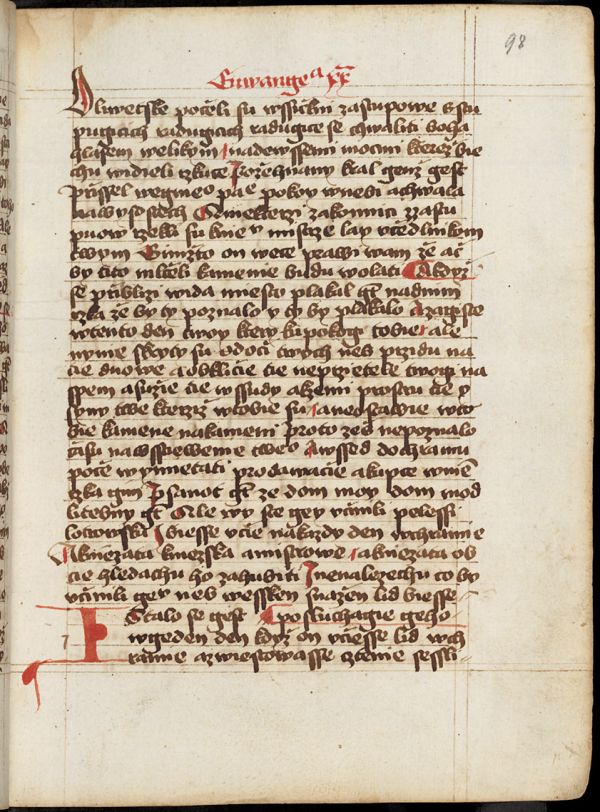 98
Euwangea xx
Oliwetske počeli su wssickni zastupowe sstu
pugicich radugicich radugice se chwaliti boha
hlasem welikym nadewssemi mocmi kterez bie
chu widieli rzkuce Pozehnany kral genz gest
przissel wegmeo pae pokoy wnebi achwala
nawysostech Aniekterzi zakonnici zzastu
puow rzekli su knie y mistrze lay učedlnikom
twym Gimžto on wece prawi wam že ač
by tito mlčeli kamenie budu wolati Akdyž
se přiblizi wida miesto plakal gt nadnim
rzka že by ty poznalo y ty by plakalo Azagiste
wtento den twoy ktery kupokogi tobie ale
nynie skryty su odočí twych neb přzidu na
tie dnowe aobklicie tie neprzietele twogi na
spem asuzie tie wssudy akzemi prostru tie y
syny twe kterziz wtobie su aneostawie wto
bie kamene nakameni proto žes nepoznalo
času nawsstiewenie tweo Awssed dochramu
poče wymietati prodawacie akupce wniem
rzka gim Psanot gt ze dom moy dom mod
litebny gt Ale wy ste gey včinili pelessi
lotrowsku Biesse vče nakazdy den wchramie
Akniezata knezska amistrowe akniezata ob
cie hledachu ho zahubiti Inenalezechu co by
včinili gey neb wessken snazen lid biesse
Stalo se gest Aposluchagie geho
wgeden den kdyz on včiesse lid wch
ramie azwiestowasse cztenie sessli